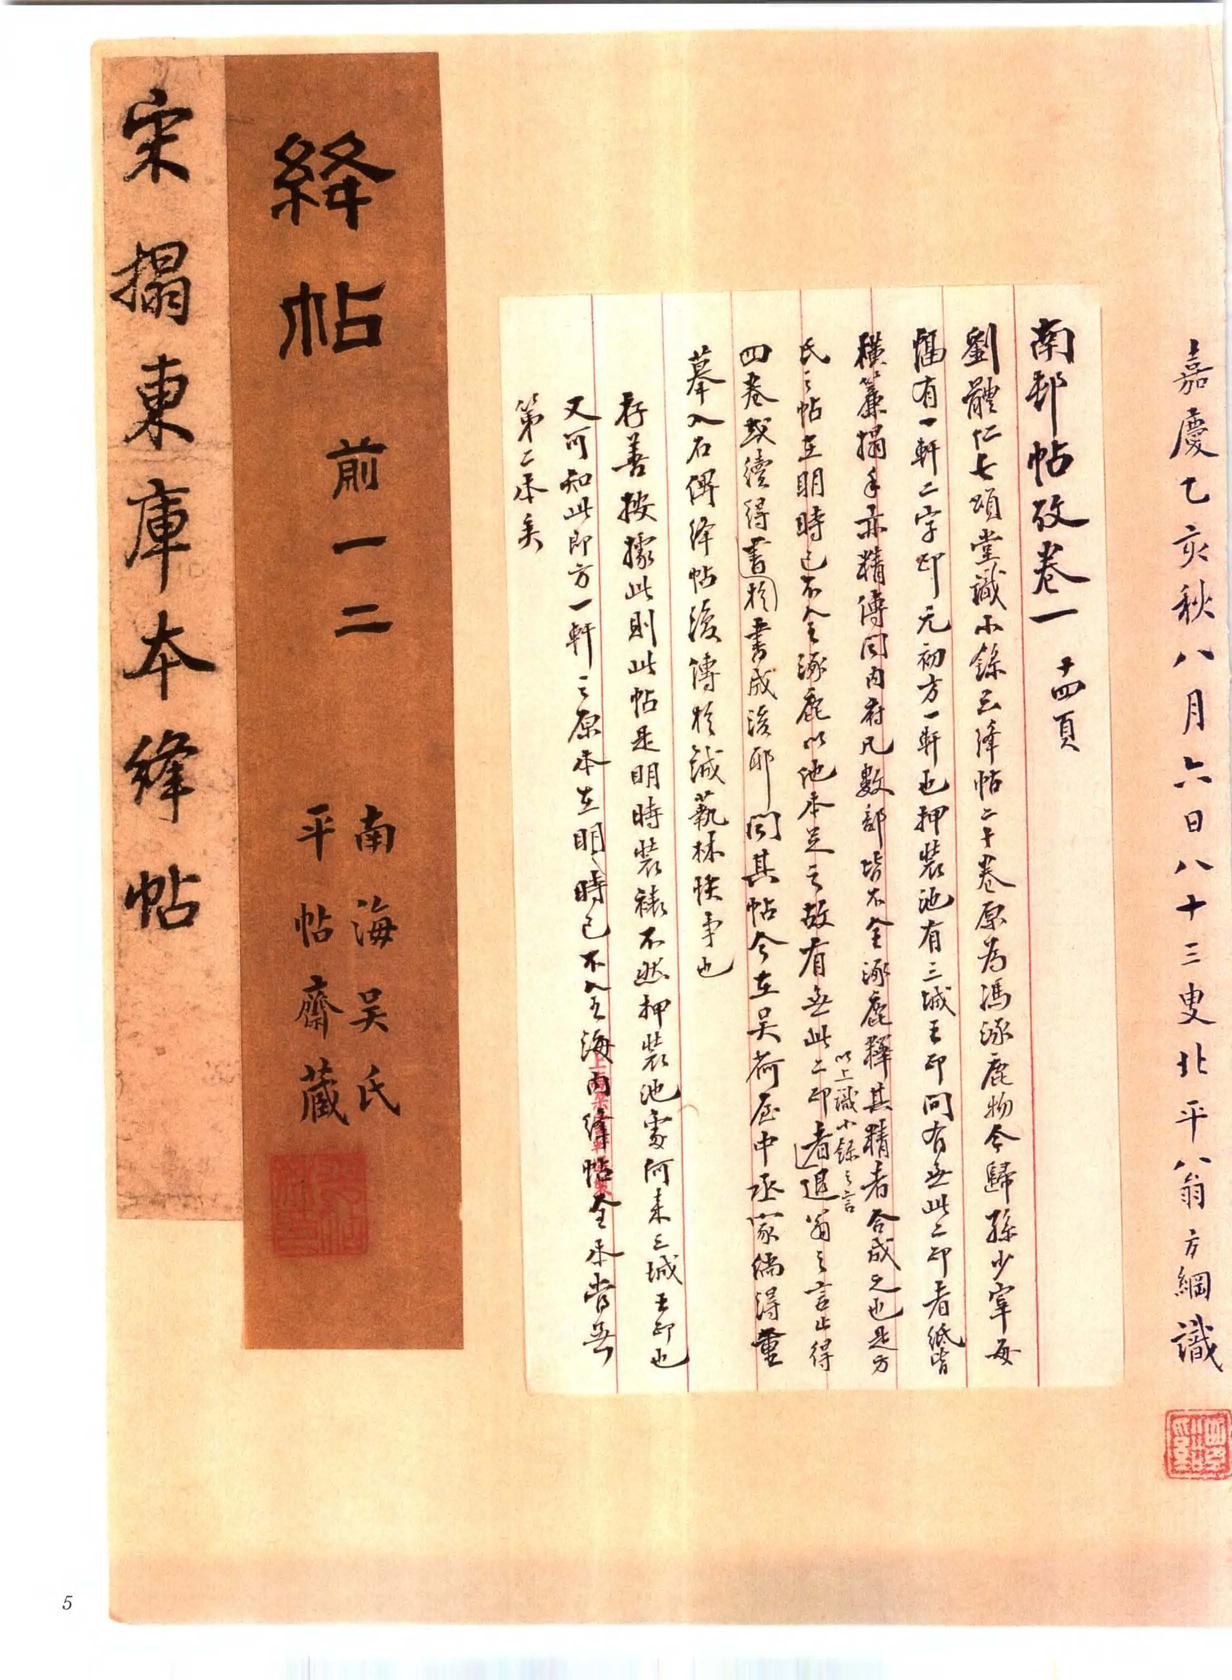 嘉慶乙亥秋八月六日八十三叟北平八翁方綱識
南邨帖攷卷一 十四頁
劉體仁七頌堂識小錄云絳帖二十卷原為馮涿鹿物今歸孫少宰每
幅有一軒二字印元初方一軒也押裝池有三城王印間有無此二印者紙皆
橫簾搨手亦精傳聞內府凡數部皆不全涿鹿擇其精者合成之也是方
氏之帖在明時已不全涿鹿以他本足之故有無此二印者
以上識小錄之言
退翁之言止得
四卷或續得書於書成後耶聞其帖今在吳荷屋中丞家倘得重
摹入石俾絳帖復傳於誠藝林快事也
存善按據此則此帖是明時裝裱不然押裝池處何來三城王印也
又何知此即方一軒之原本在明時已不全海內絳帖全本當無
第二本矣
絳帖 前一二
南海吳氏
平帖齋藏
宋搨東庫本絳帖
5